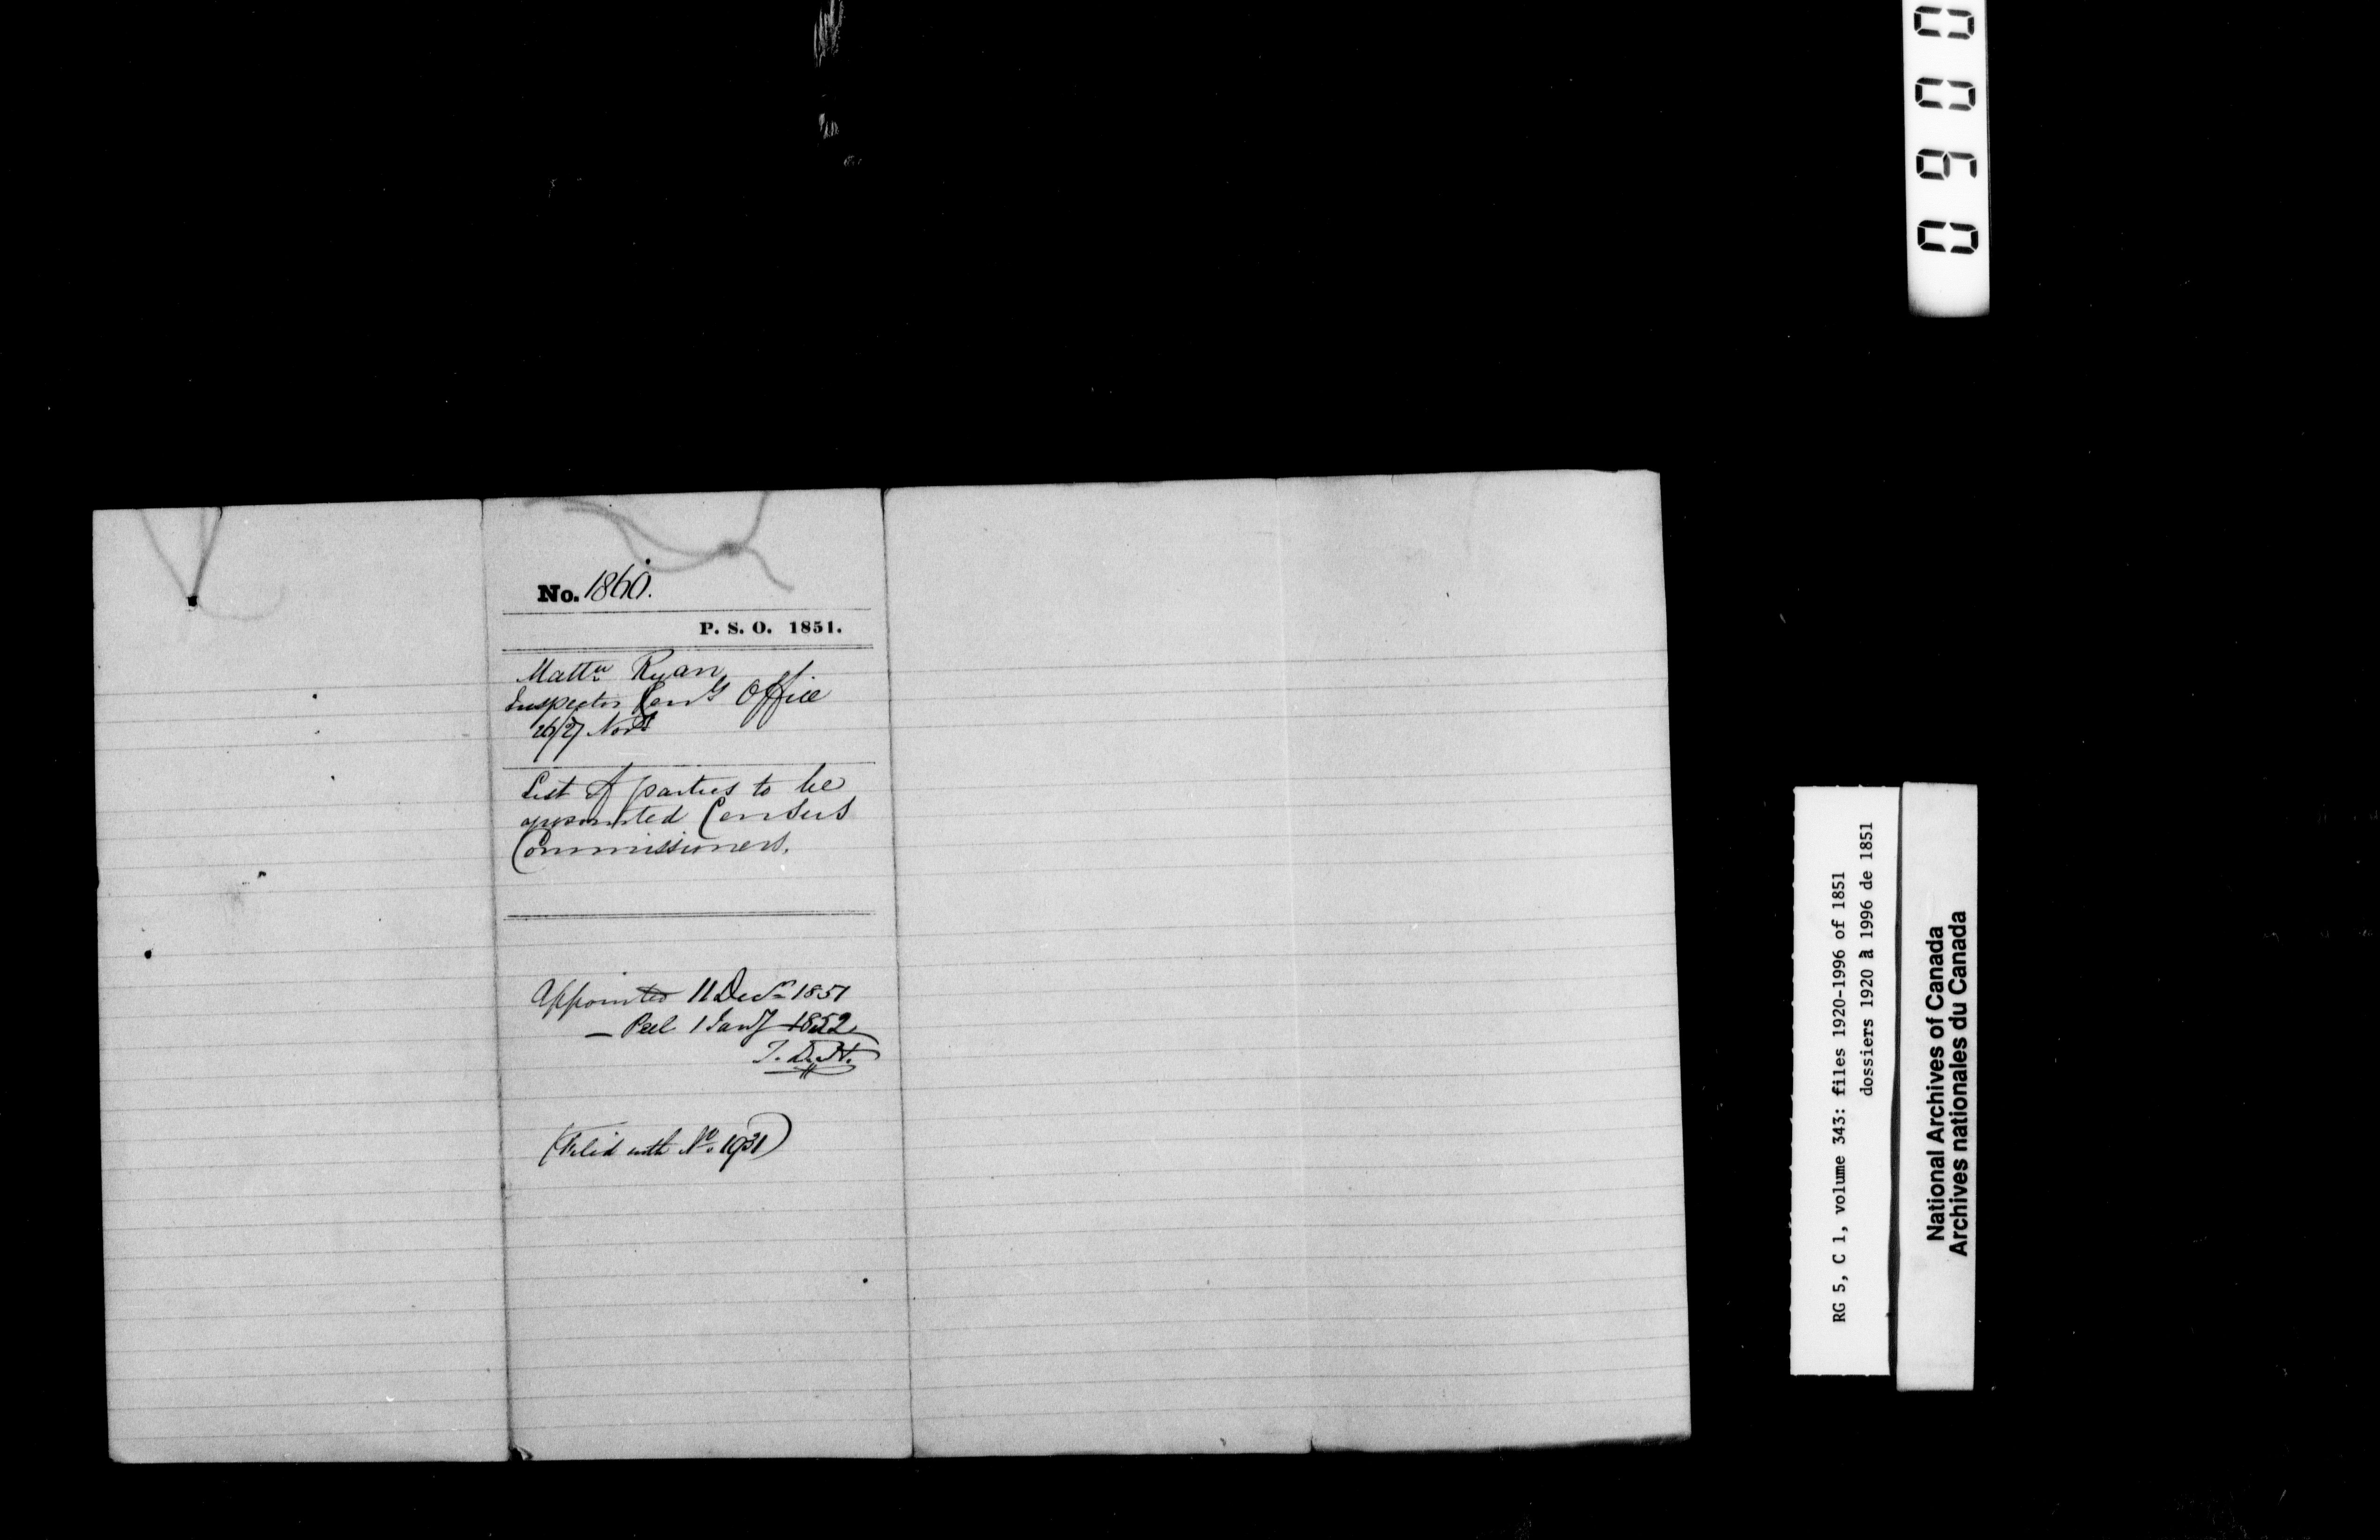 No. 1860.
P. S. O. 1851.
Mattw Ryan
Inspector Genls Office
26/27 Nov
List of parties to be
appointed Census
Commissioners.
Appointed 11 Decr 1851
— Peel 1 Jany 1852
(Filed with No. 1931)
0900
RG 5, C 1, volume 343: files 1920-1996 of 1851
dossiers 1920 à 1996 de 1851
National Archives of Canada
Archives nationales du Canada